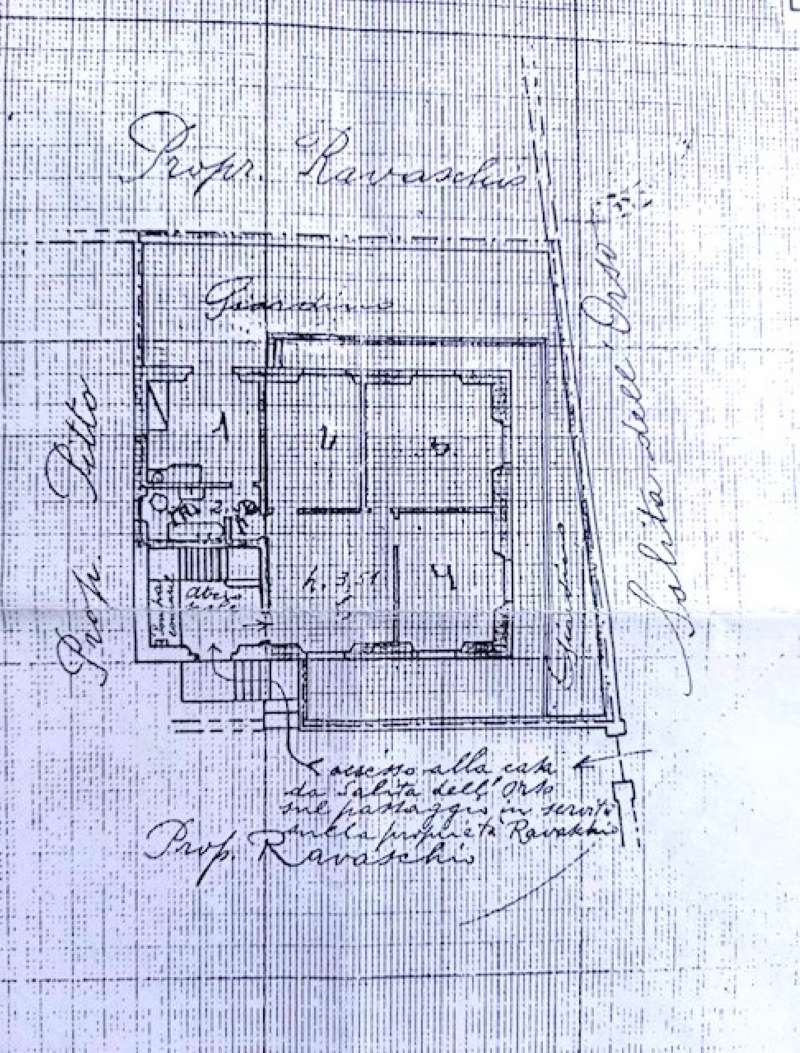 Propr. Ravaschio
Giardino
Salita dell'Orso
Prop. Pitto
1
2
3
h. 3,51
4
5
Giardino
accesso alla casa
da Salita dell'Orso
sul passaggio in servitù
sulla proprietà Ravaschio
Prop. Ravaschio